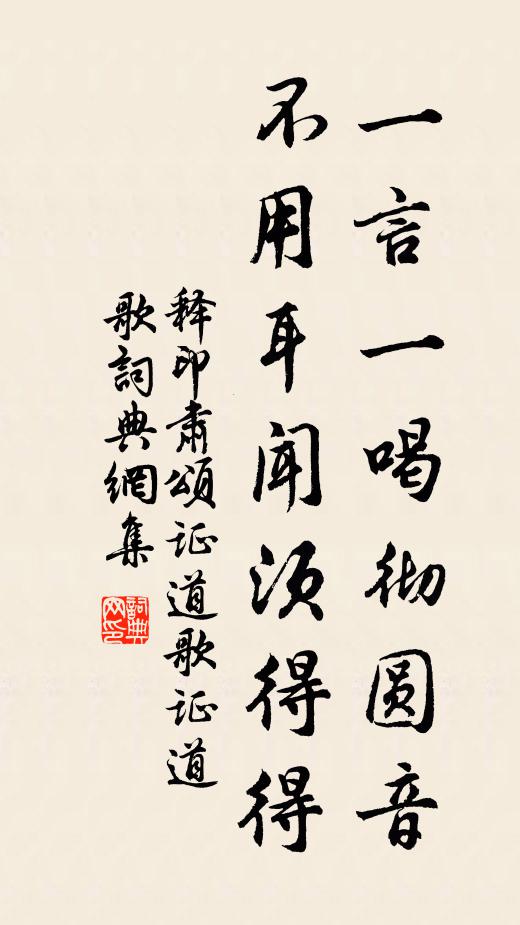 一言一喝彻圆音
不用耳闻须得得
释印肃颂证道歌证道
歌詞典網集
詞典
网印